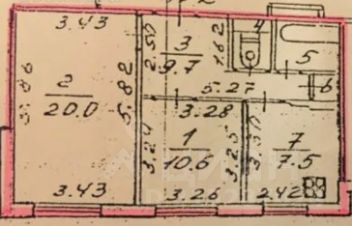 3.43
2.50
3
9.7
1.62
4
5
5.86
2
20.0
5.82
5.27
6
3.28
3.24
1
10.6
3.25
3.30
7
7.5
3.43
3.26
2.42